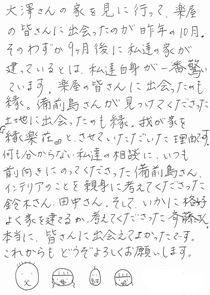 大澤さんの家を見に行って、楽屋
の皆さんに出会ったのが昨年の10月。
そのわずか9ヶ月後に私達の家が
建っているとは、私達自身が一番驚い
ています。楽屋の皆さんに出会ったのも
縁。備前島さんが見つけてくださった
土地に出会ったのも縁。我が家を
「縁楽荘」とさせていただいた理由です。
何も分からない私達の相談に、いつも
前向きにのってくださった備前島さん、
インテリアのことを親身に考えてくださった
鈴木さん、田中さん。そして、いかに格好
よく家を建てるか、考えてくださった斉藤さん。
本当に、皆さんに出会えてよかったです。
これからもどうぞよろしくお願いします。